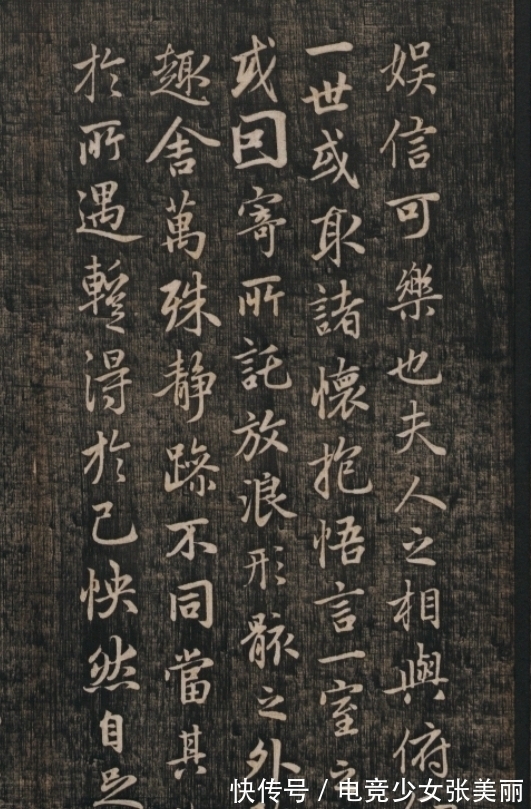 娱信可樂也夫人之相與俯
一世或取諸懷抱悟言一室之
或因寄所託放浪形骸之外
趣舍萬殊静躁不同當其
於所遇暫得於己怏然自足
快传号／电竞少女张美丽